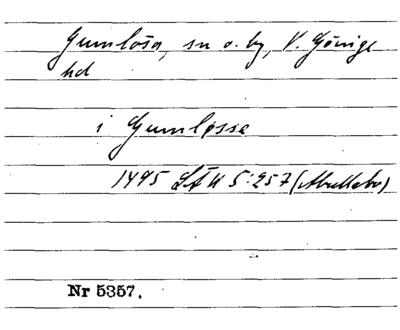 Gumlösa, sn o. by, V. Göinge
hd
i Gumløsse
1495 LÅU 5:257
Nr 5357.